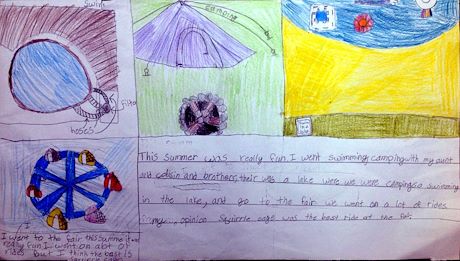 Swim
camping
filter
hoses
This summer was really fun. I went swimming, camping with my aunt
and cousin and brothers, their was a lake were we were camping. I swimming
in the lake, and go to the fair we went on a lot of rides
opinion Squirrle cage was the best ride at the fair.
I went to the fair this summer it was
really fun I went on alot of
rides but I think the best is
squirrle cage